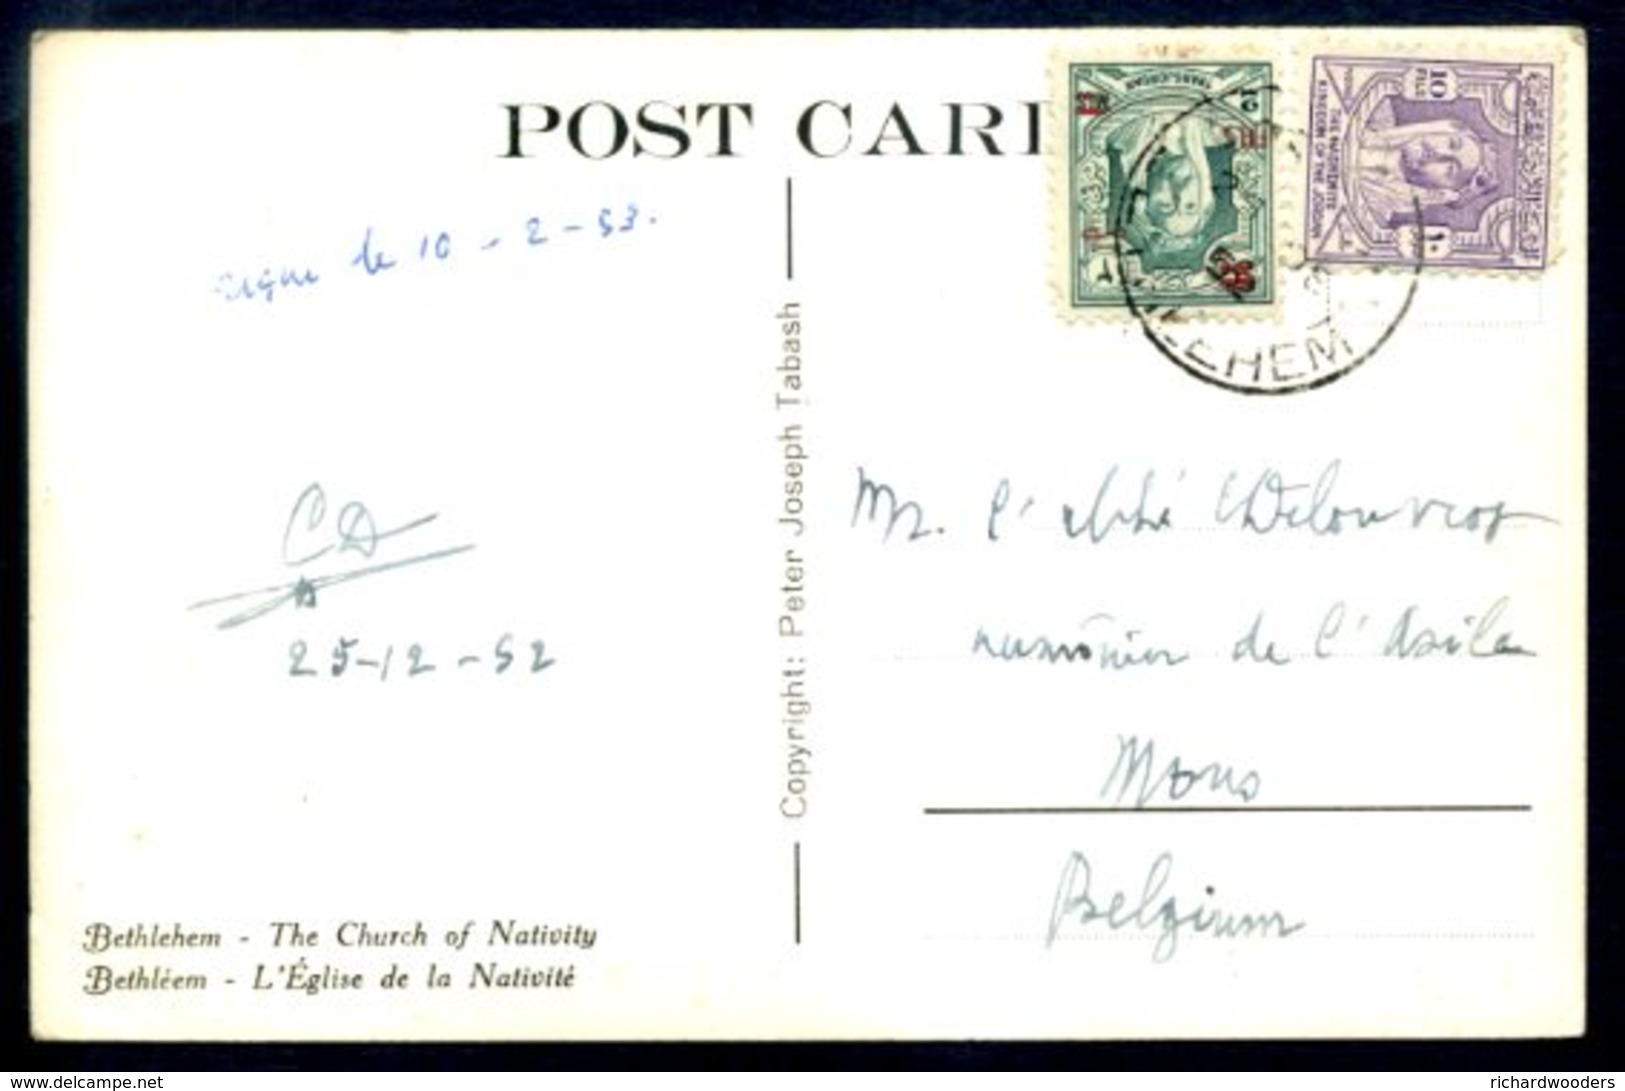 POST CARD
reçue le 10 - 2 - 53.
10 FILS
THE HASHEMITE
KINGDOM OF THE JORDAN
TRANS-JORDAN
FILS
BETHLEHEM
Copyright: Peter Joseph Tabash
Mr. l'abbé
aumônier de l'Asile
Mons
Belgium
CD
25-12-52
Bethlehem - The Church of Nativity
Bethléem - L'Église de la Nativité
delcampe.net
richardwooders